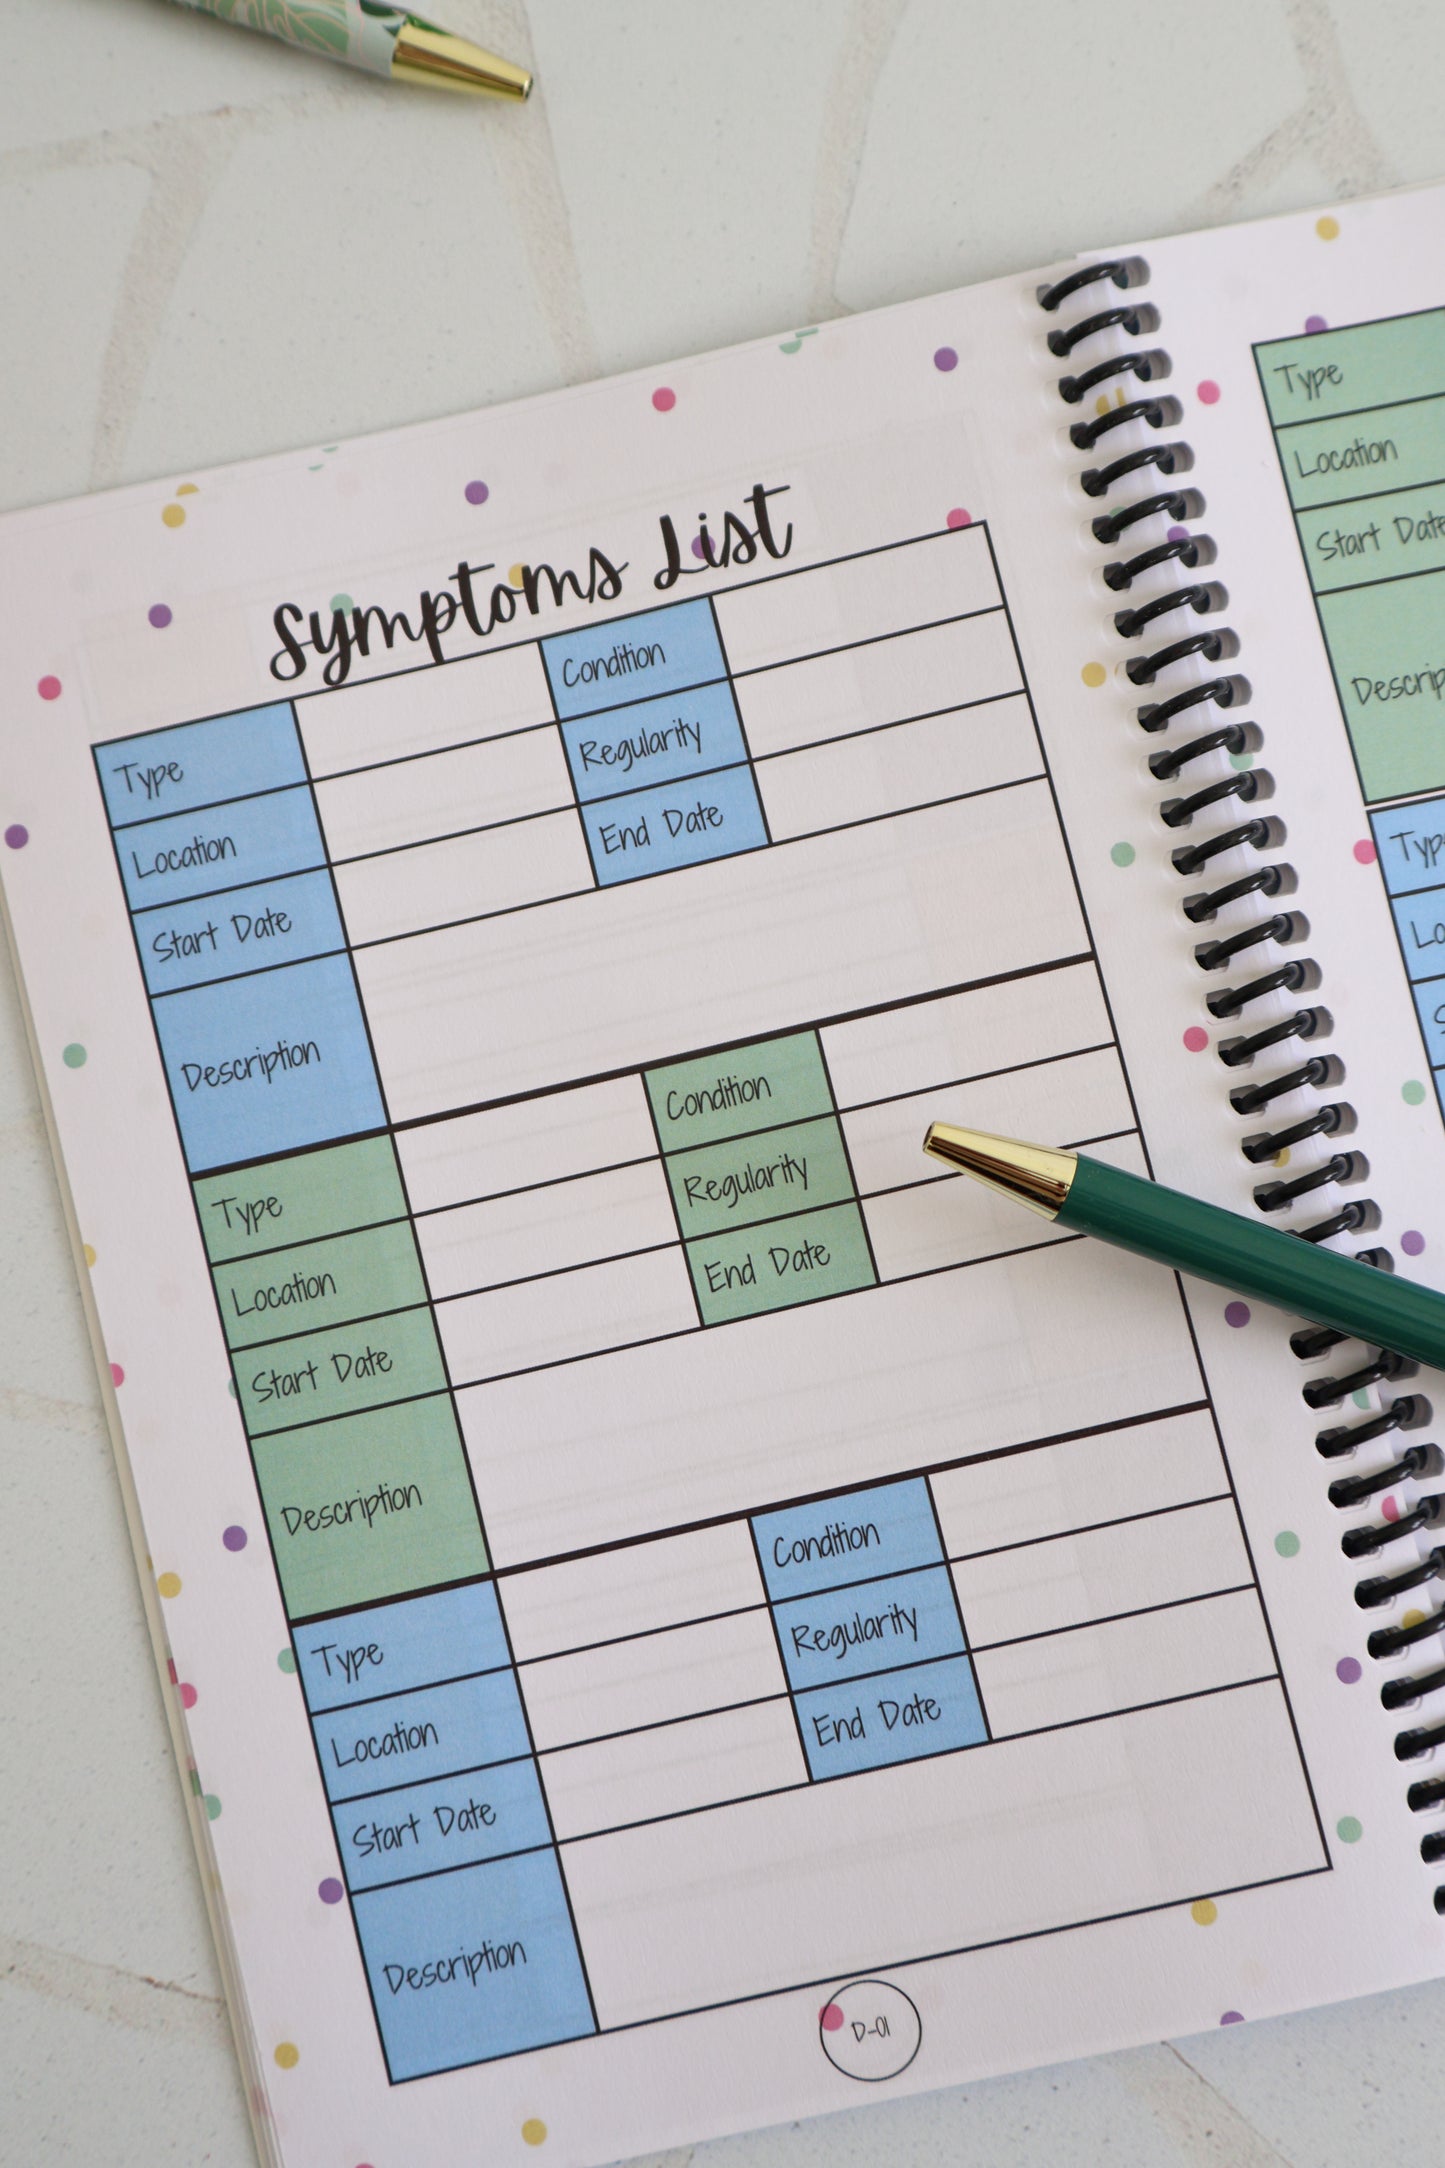 Symptoms List
Type
Condition
Location
Regularity
Start Date
End Date
Description
Type
Condition
Location
Regularity
Start Date
End Date
Description
Type
Condition
Location
Regularity
Start Date
End Date
Description
D-01
Type
Location
Start Date
Descrip
Typ
Lo
S